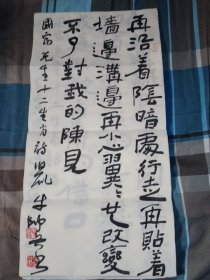 再沿着陰暗處行走再貼着
墻邊溝邊再小心翼々也改變
不了對我的陳見
國家先生十二生肖詩